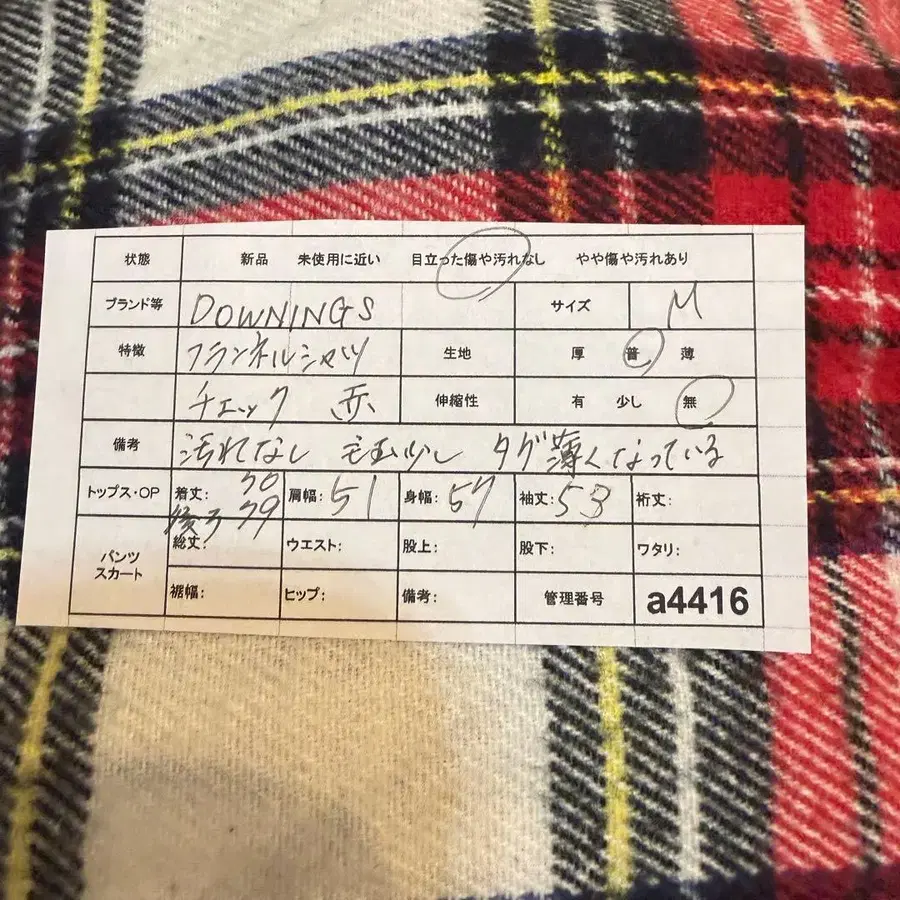 状態 新品 未使用に近い 目立った傷や汚れなし やや傷や汚れあり
ブランド等 DOWNINGS サイズ M
特徴 フランネルシャツ 生地 厚 普 薄
チェック 赤 伸縮性 有 少し 無
備考 汚れなし 毛玉少し タグ薄くなっている
トップス・OP 着丈: 70 肩幅: 51 身幅: 57 袖丈: 53 裄丈:
後ろ 79
パンツ スカート 総丈: ウエスト: 股上: 股下: ワタリ:
裾幅: ヒップ: 備考: 管理番号 a4416